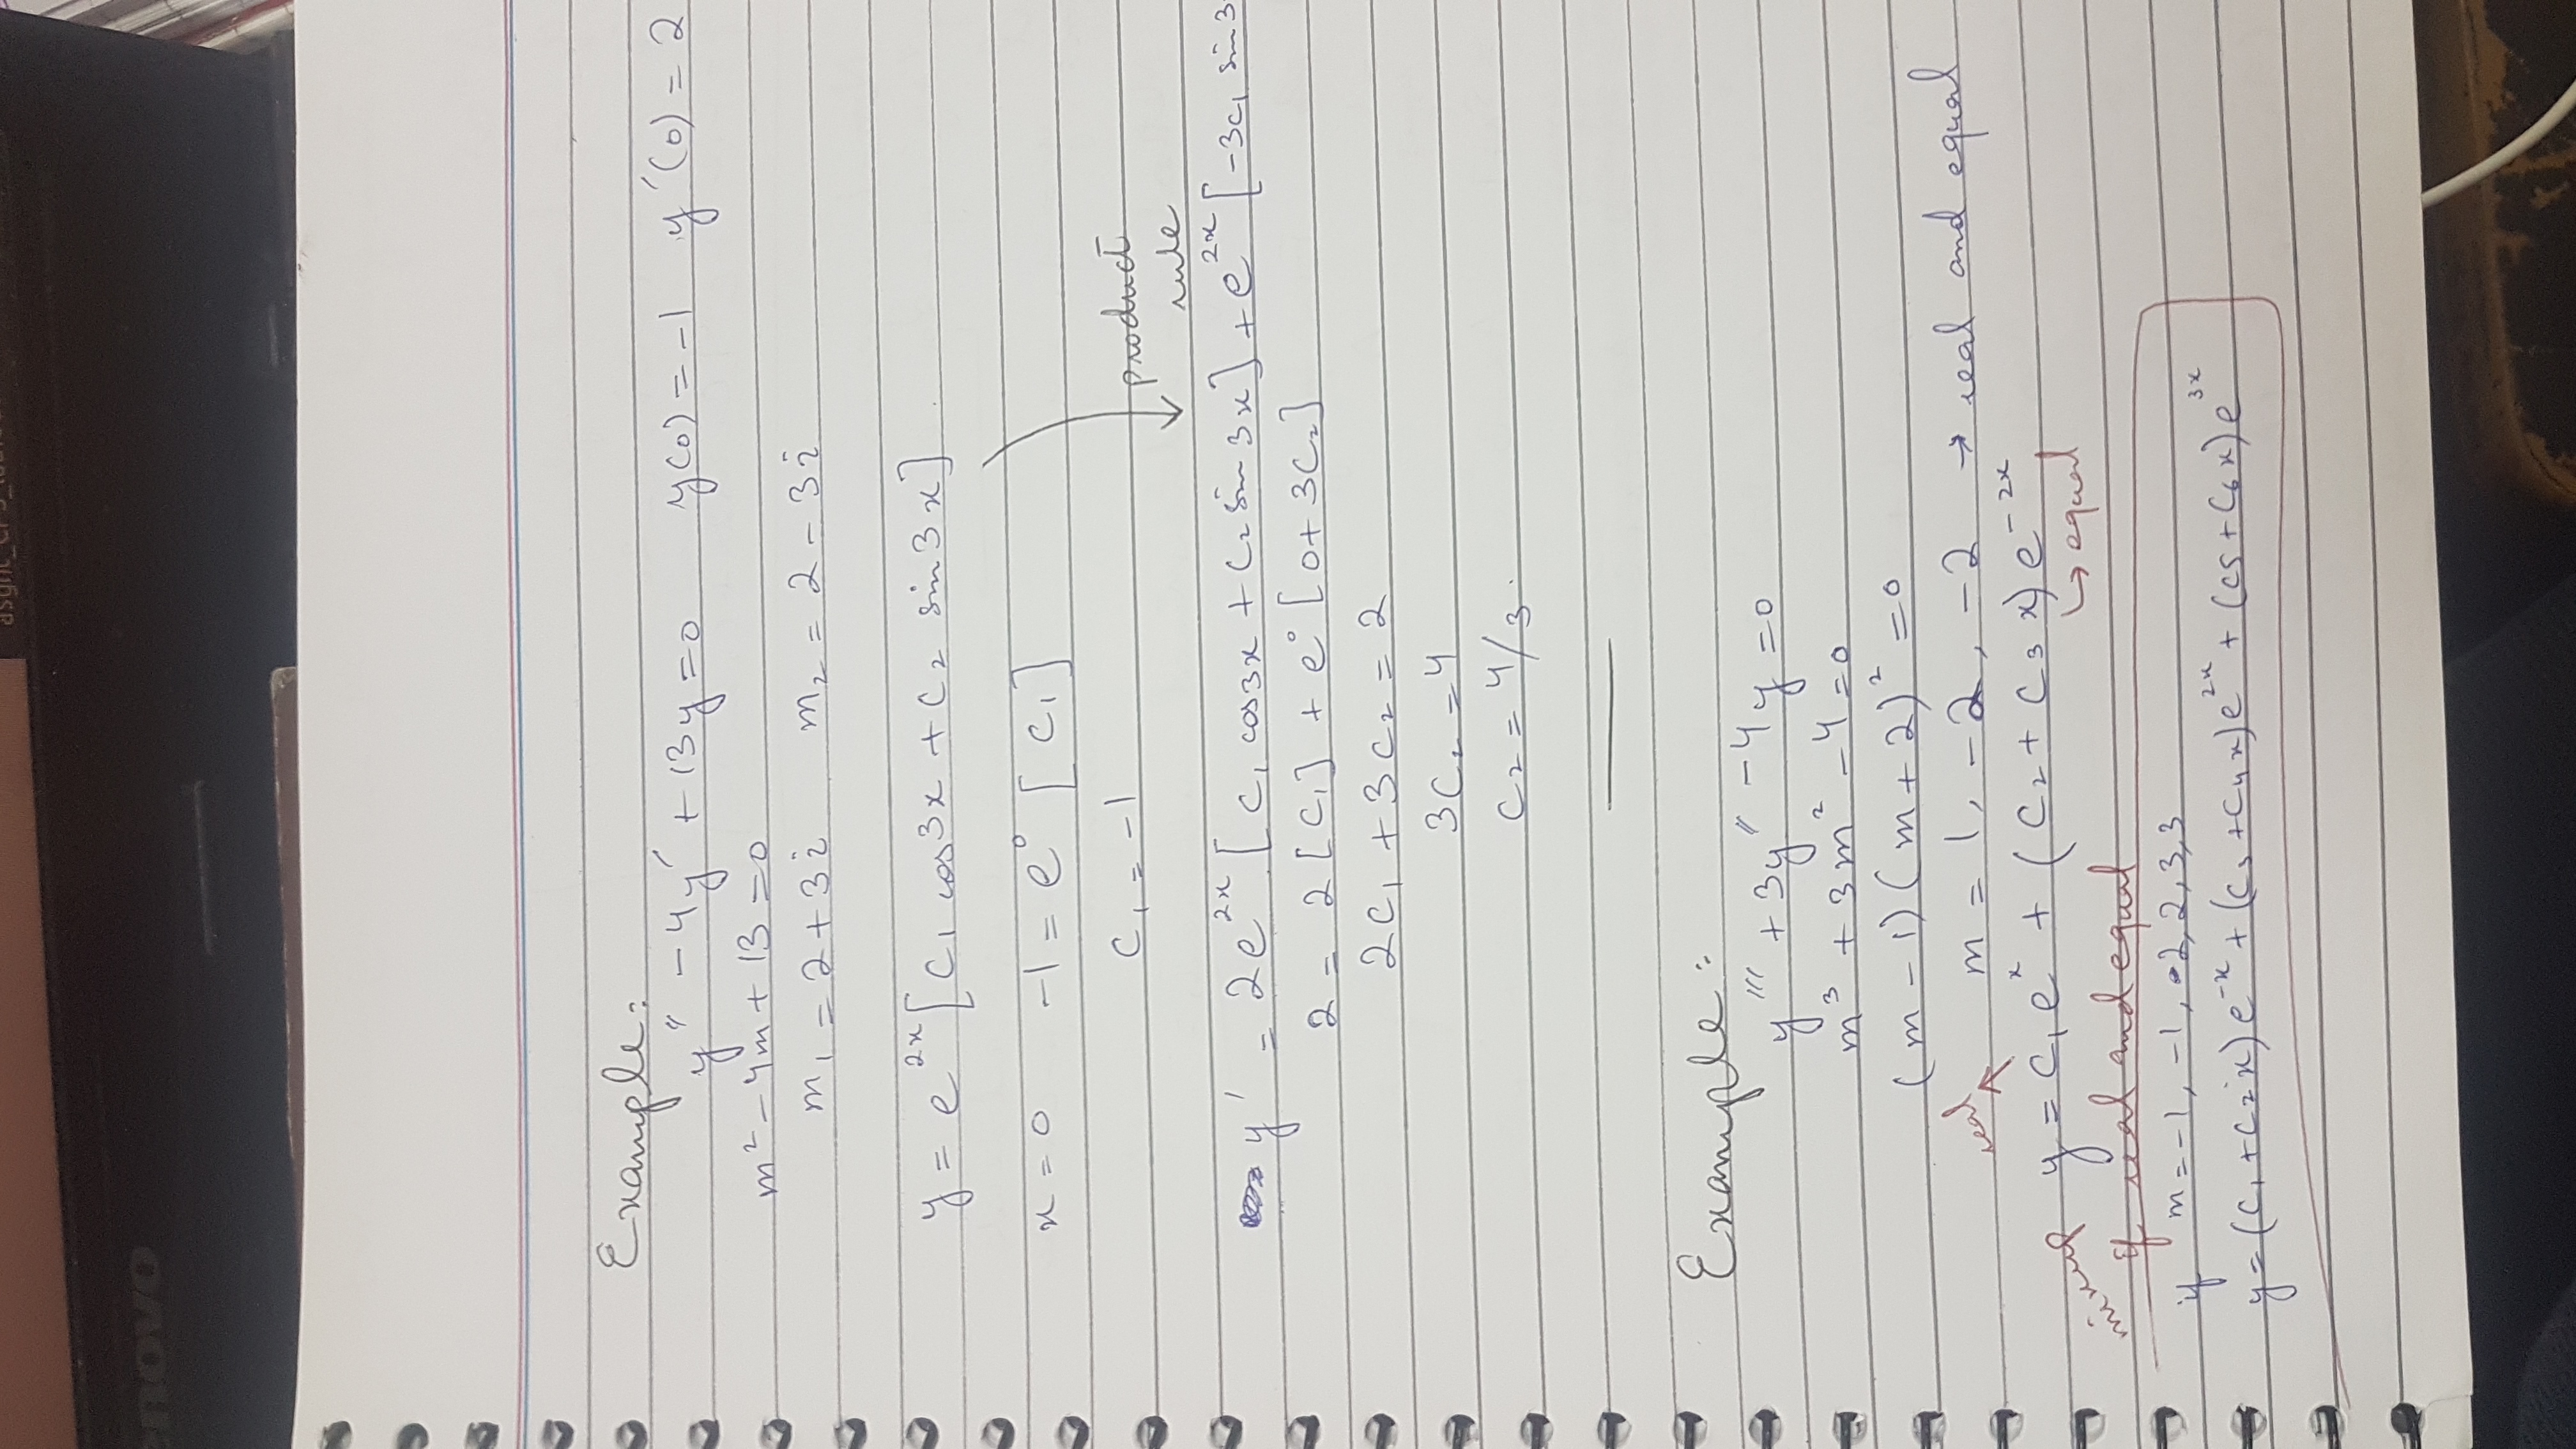 enovo
Example:
y'' - 4y' + 13y = 0 y(0) = -1 y'(0) = 2
m² - 4m + 13 = 0
m₁ = 2 + 3i m₂ = 2 - 3i
y = e^2x [c₁ cos 3x + c₂ sin 3x]
x = 0 -1 = e⁰ [c₁]
c₁ = -1
product
rule
y' = 2e^2x [c₁ cos 3x + c₂ sin 3x] + e^2x [-3c₁ sin 3
2 = 2[c₁] + e⁰ [0 + 3c₂]
2c₁ + 3c₂ = 2
3c₂ = 4
c₂ = 4/3.
Example:
y''' + 3y'' - 4y = 0
m³ + 3m² - 4 = 0
(m - 1)(m + 2)² = 0
real m = 1, -2, -2 → real and equal
y = c₁e^x + (c₂ + c₃x)e^-2x
mixup ↳ equal
if real and equal
if m = -1, -1, 2, 2, 3, 3
y = (c₁ + c₂x)e^-x + (c₃ + c₄x)e^2x + (c5 + c₆x)e^3x